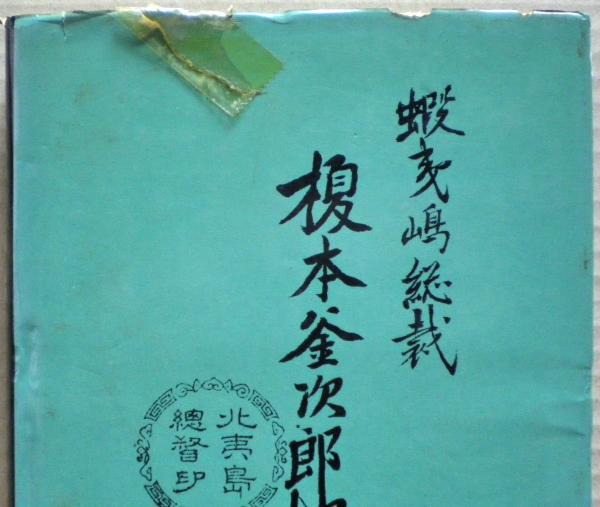 蝦夷嶋総裁
榎本釜次郎
北夷島
總督印